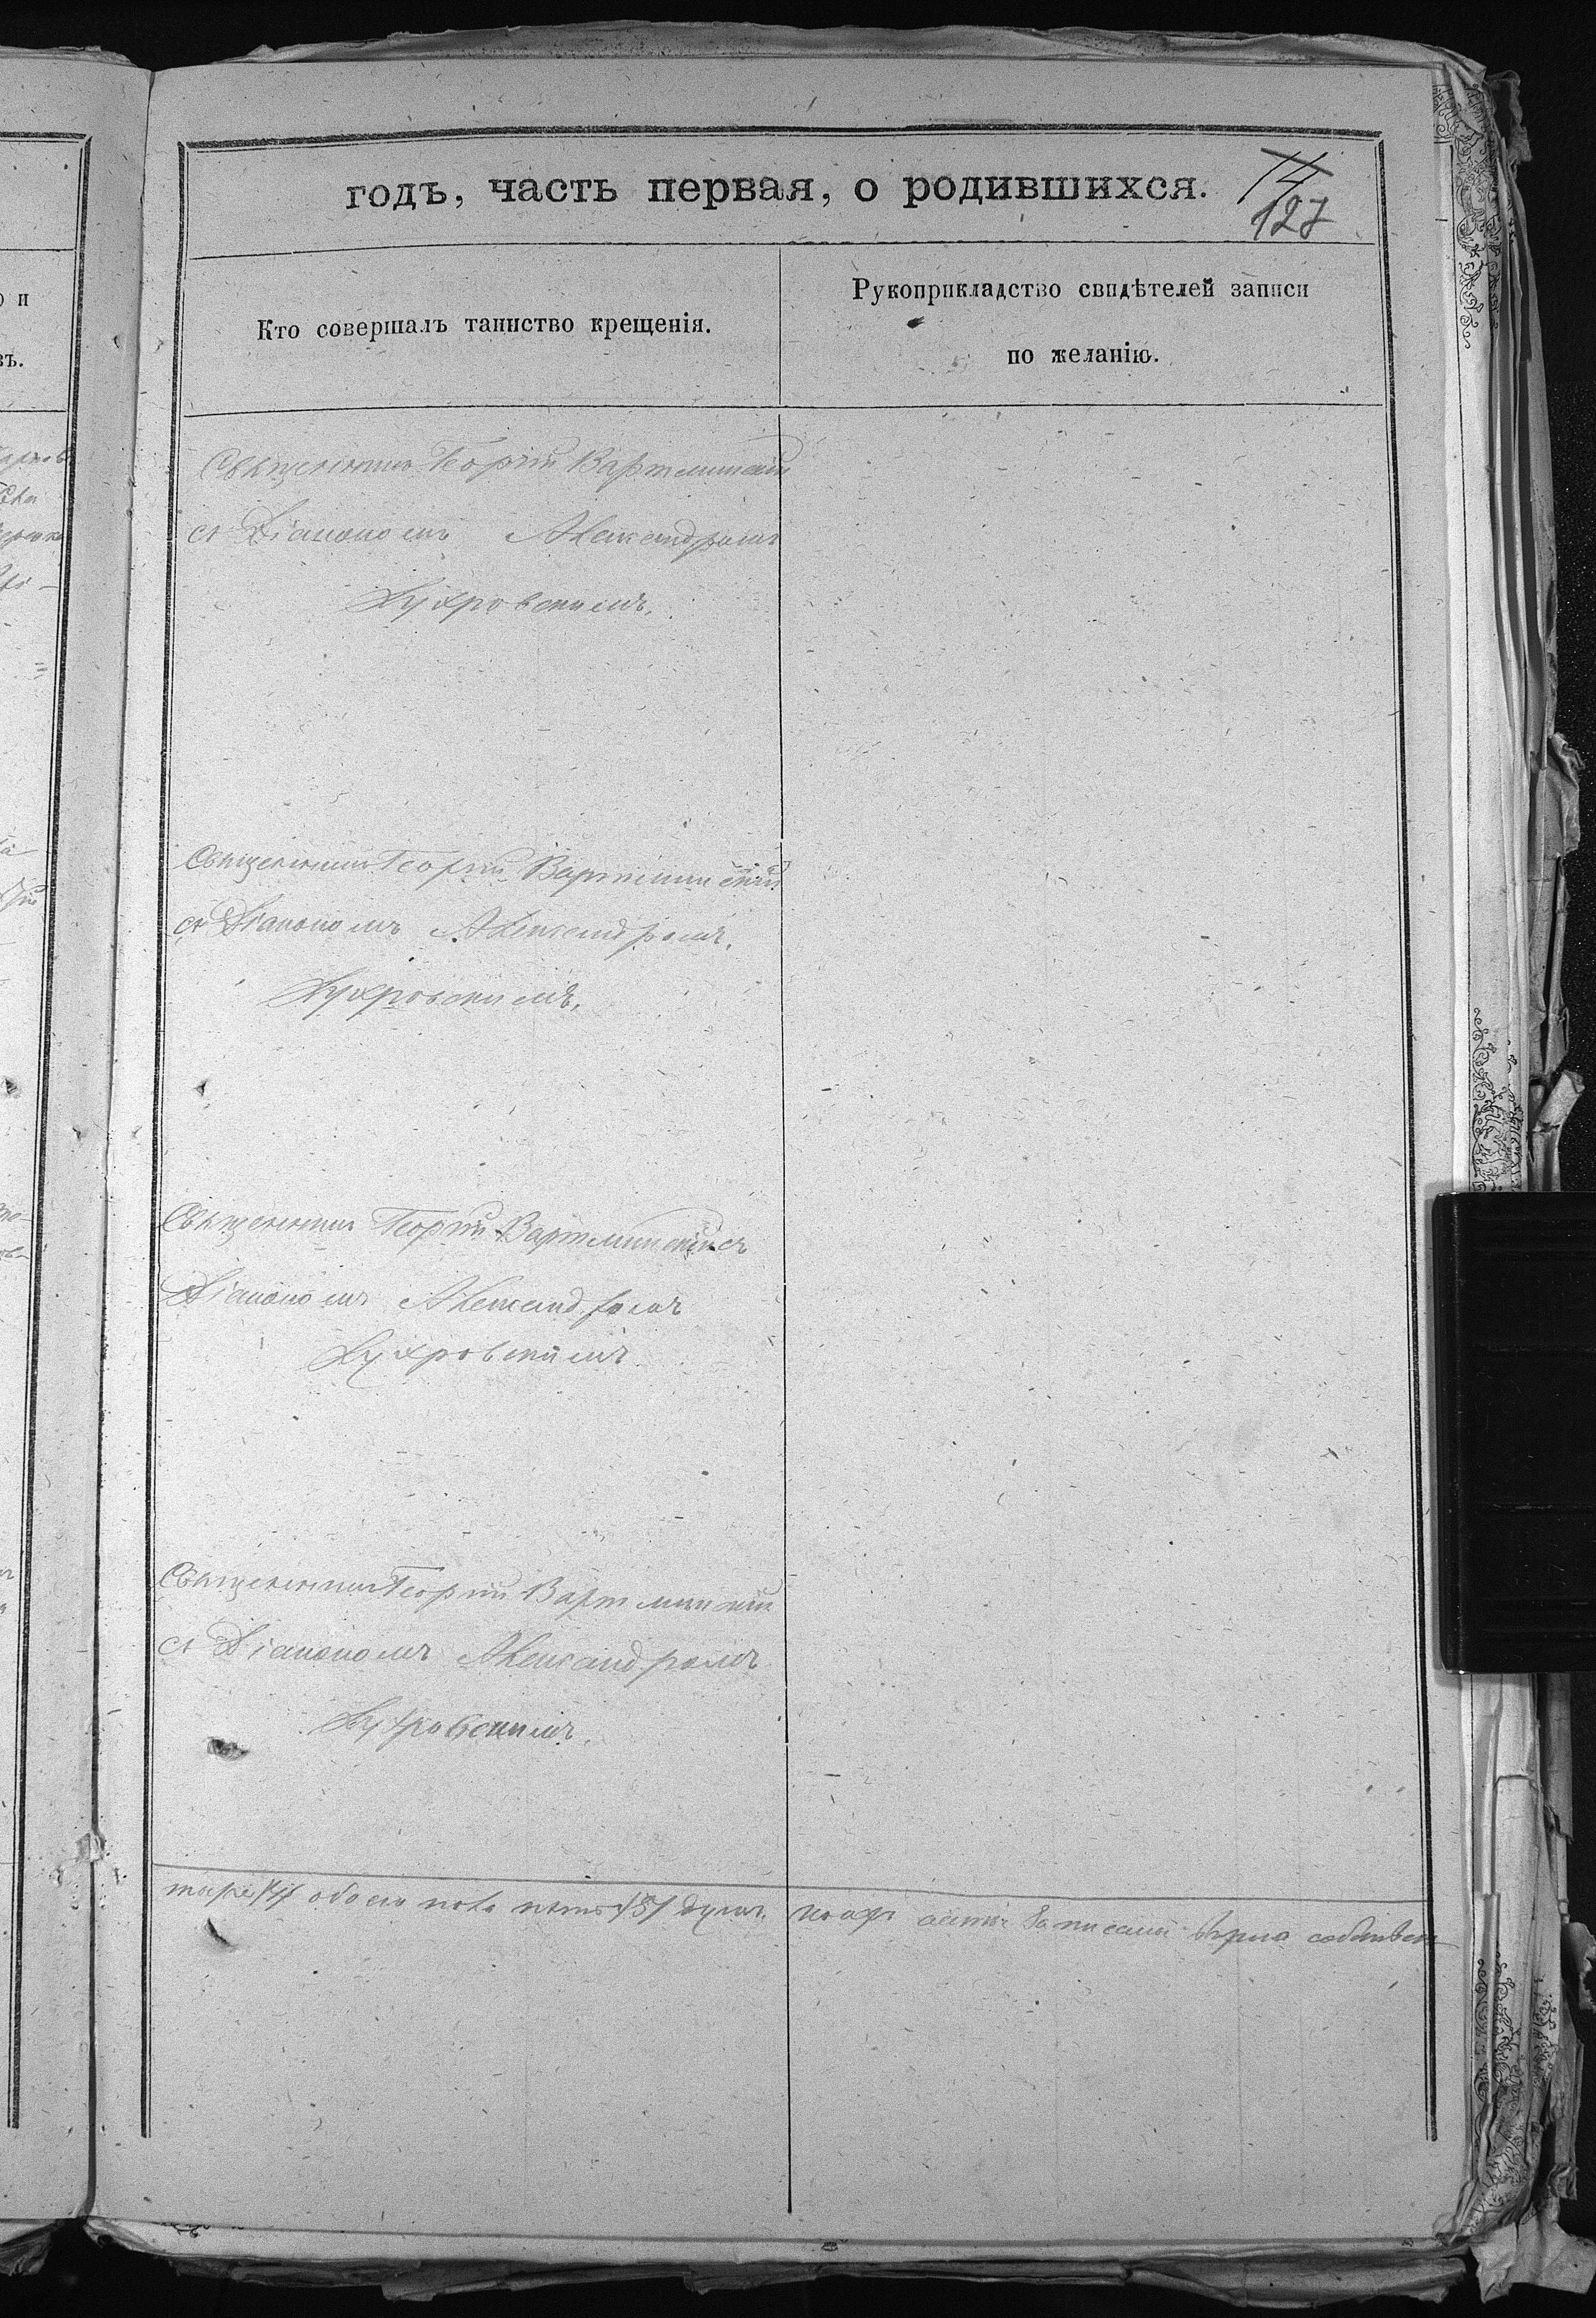 годъ, часть первая, о родившихся.
14
127
Кто совершалъ таинство крещенія.
Рукоприкладство свидѣтелей записи
по желанію.
Священникъ Георгій Вартминскій
съ Діакономъ Александромъ
Кухровскимъ.
Священникъ Георгій Вартминскій
съ Діакономъ Александромъ
Кухровскимъ.
Священникъ Георгій Вартминскій съ
Діакономъ Александромъ
Кухровскимъ
Священникъ Георгій Вартминскій
съ Діакономъ Александромъ
Кухровскимъ.
тыре /4/ обоего пола пять /5/ душъ. актъ записанъ вѣрно